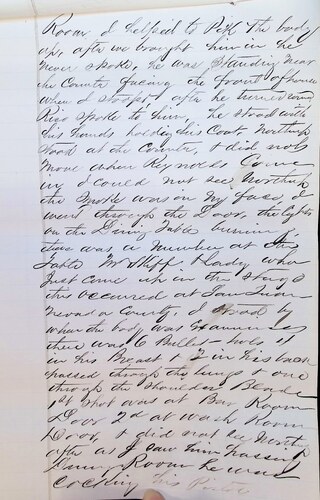 Room I helped to Pick the body
up, after we brought him in he
never spoke, he was standing near
the Counter facing the front of house
when I stooped, after he turned round
Reyn spoke to him, he stood with
his hands holding his Coat, Northup
stood at the Counter, I did not
move when Reynolds Came
in, I could not see Northup
the smoke was in my face, I
went through the Door, the lights
on the Dining Table burning,
there was a number at the
Table Mr Stiff & Lady who
Just Come up in the Stage
this occurred at San Juan
Nevada County, I stood by
when the body was Examined
there was 6 Bullet hole's
in his Breast & 2 in his back
passed through the lungs & one
through the Shoulder Blade
1st Shot was at Bar Room
Door 2d at wash Room
Door, I did not see Northup
after as I saw him passing
Dining Room he was
Cocking his Pistol